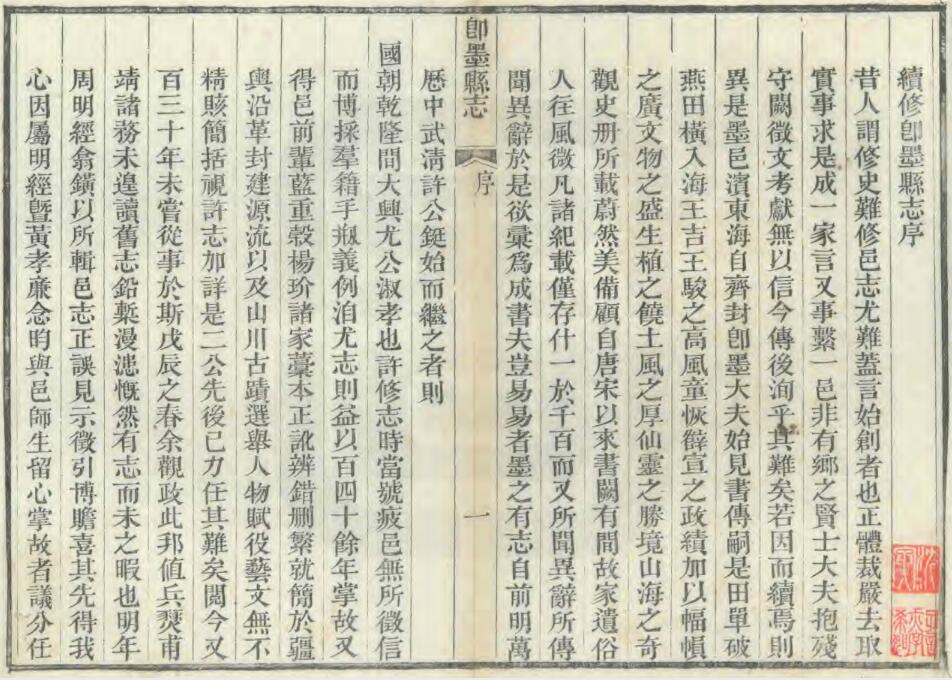 續修卽墨縣志序
昔人謂修史難修邑志尤難蓋言始創者也正體裁嚴去取
實事求是成一家言又事繫一邑非有鄉之賢士大夫抱殘
守闕徵文考獻無以信今傳後洵乎其難矣若因而續焉則
異是墨邑濱東海自齊封卽墨大夫始見書傳嗣是田單破
燕田橫入海王吉王駿之高風童恢薛宣之政績加以幅幀
之廣文物之盛生植之饒土風之厚仙靈之勝境山海之奇
觀史册所載蔚然美備顧自唐宋以來書闕有間故家遺俗
人往風微凡諸紀載僅存什一於千百而又所聞異辭所傳
聞異辭於是欲彙爲成書夫豈易易者墨之有志自前明萬
卽墨縣志
序
一
歴中武淸許公鋌始而繼之者則
國朝乾隆間大興尤公淑孝也許修志時當號疲邑無所徵信
而博採羣籍手刱義例洎尤志則益以百四十餘年掌故又
得邑前輩藍重榖楊玠諸家藁本正訛辨錯删繁就簡於疆
輿沿革封建源流以及山川古蹟選舉人物賦役藝文無不
精賅簡括視許志加詳是二公先後已力任其難矣閱今又
百三十年未嘗從事於斯戊辰之春余觀政此邦值兵燹甫
靖諸務未遑讀舊志鉛槧漫漶慨然有志而未之暇也明年
周明經翕鐄以所輯邑志正誤見示徵引博贍喜其先得我
心因屬明經曁黃孝廉念昀與邑師生留心掌故者議分任